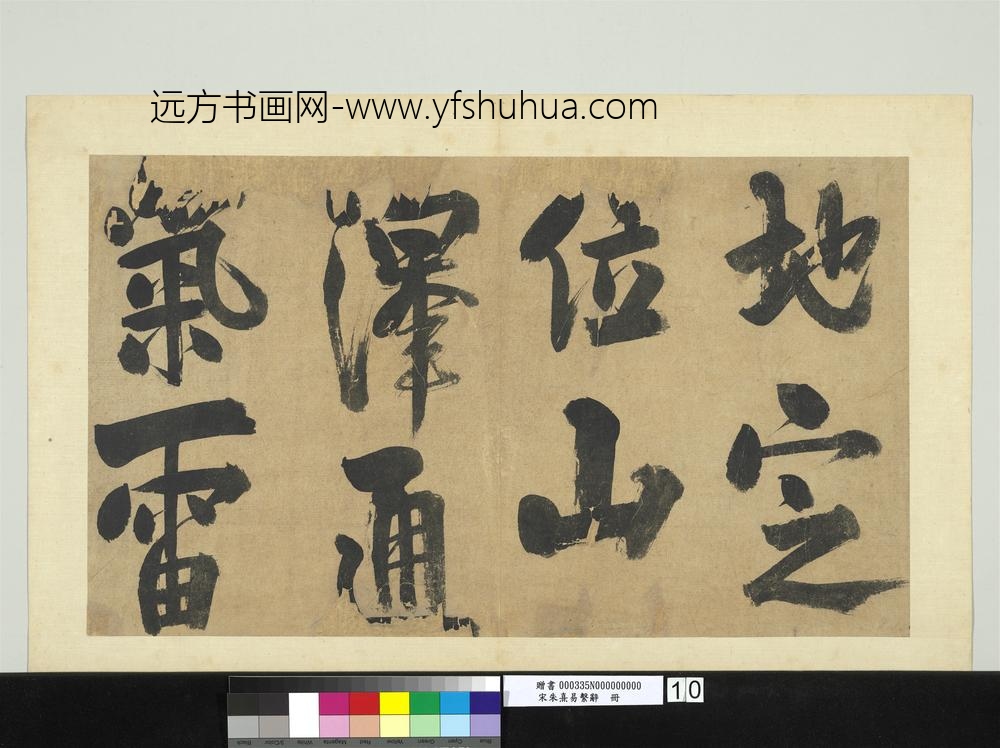 远方书画网-www.yfshuhua.com
地定
位山
澤通
氣雷
贈書 000335N000000000
宋朱熹易繫辭 冊
10
Black
3/Color
White
Magenta
Red
Yellow
Green
Cyan
Blue